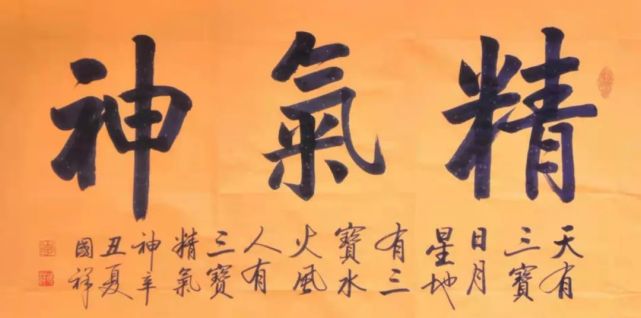 精氣神
天有
三寶
日月
星地
有三
寶水
火風
人有
三寶
精氣
神辛
丑夏
國祥